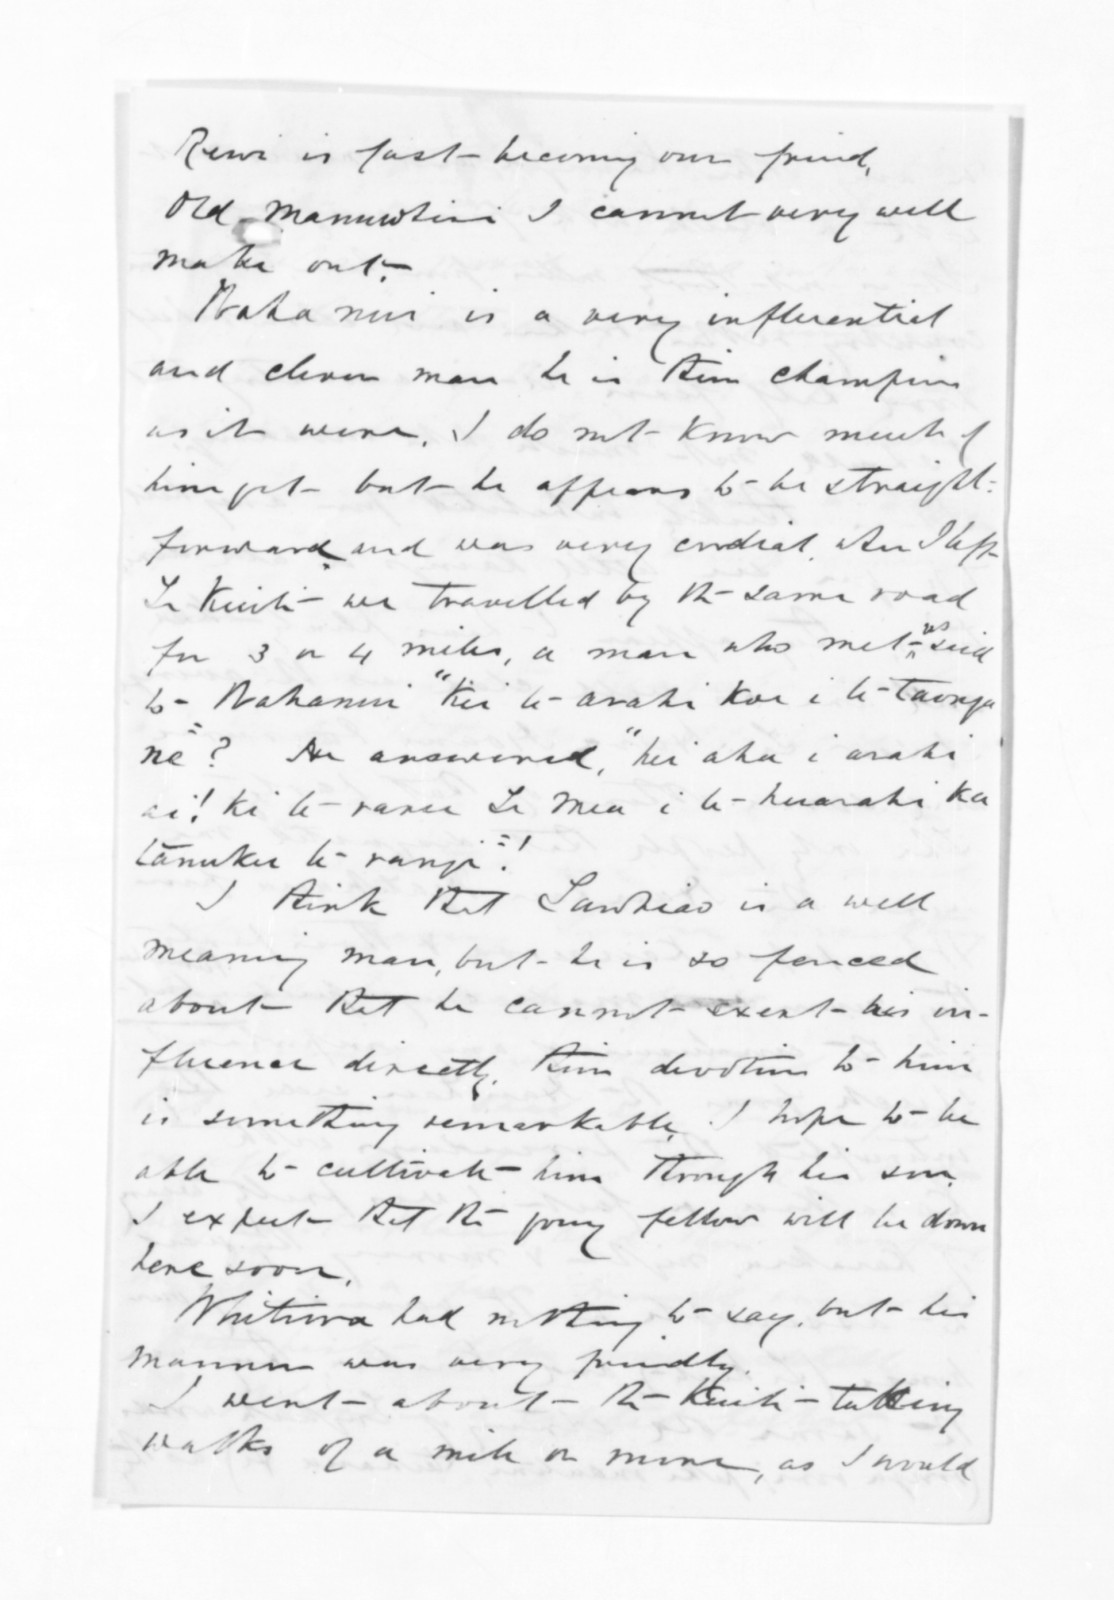 Rewi is fast becoming our friend,
Old Manuwhiri I cannot very well
make out.
Wahanui is a very influential
and clever man he is their champion
as it were, I do not know much of
him yet but he appears to be straight-
forward and was very cordial. When I left
Te Kuiti we travelled by the same road
for 3 or 4 miles, a man who met us said
to Wahanui "Kei te arahi koe i te taonga
nē"? He answered, "hei aha i arahi
ai! ki te raru Te Mea i te huarahi ka
tānuku te rangi"!
I think that Tawhiao is a well
meaning man, but he is so fenced
about that he cannot exert his in-
fluence directly. Their devotion to him
is something remarkable. I hope to be
able to cultivate him through his son.
I expect that the young fellow will be down
here soon.
Whitiora had nothing to say, but his
manner was very friendly.
I went about the Kuiti taking
walks of a mile or more, as I would